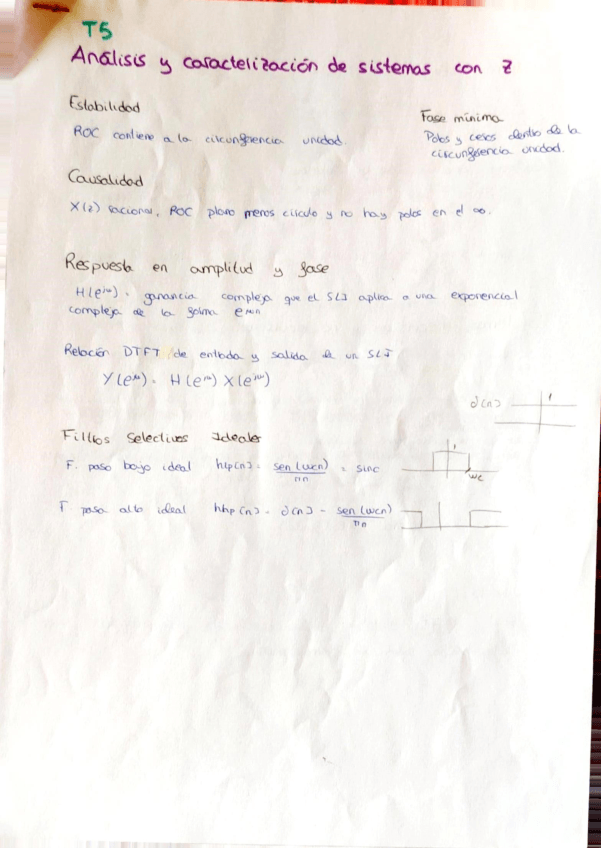 T5
Análisis y caracterización de sistemas con Z
Estabilidad
ROC contiene a la circunferencia unidad.
Fase mínima
Polos y ceros dentro de la
circunferencia unidad.
Causalidad
X(z) racional, ROC plano menos círculo y no hay polos en el ∞.
Respuesta en amplitud y fase
H(e^jω) = ganancia compleja que el SLI aplica a una exponencial
compleja de la forma e^jωn
Relación DTFT de entrada y salida de un SLI
Y(e^jω) = H(e^jω) X(e^jω)
δ[n] 1
Filtros Selectivos Ideales
F. paso bajo ideal hlp[n] = sen(ωcn)/πn = sinc
1
ωc
F. paso alto ideal hhp[n] = δ[n] - sen(ωcn)/πn